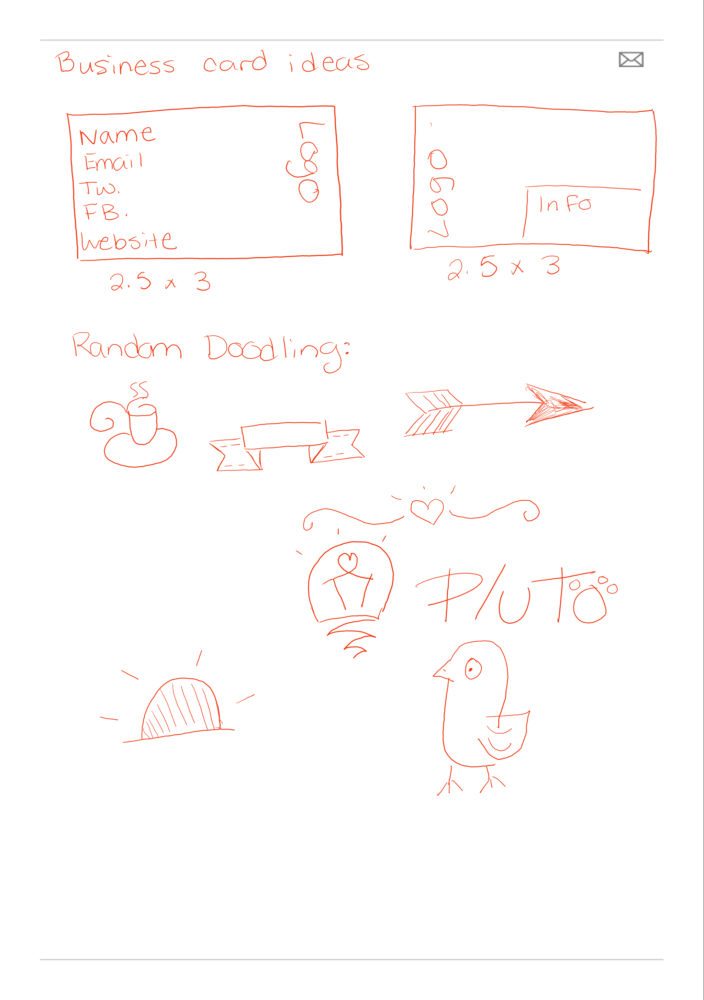 Business card ideas
Name
Email
Tw.
FB.
Website
Logo
2.5 x 3
Logo
Info
2.5 x 3
Random Doodling:
PLUTO